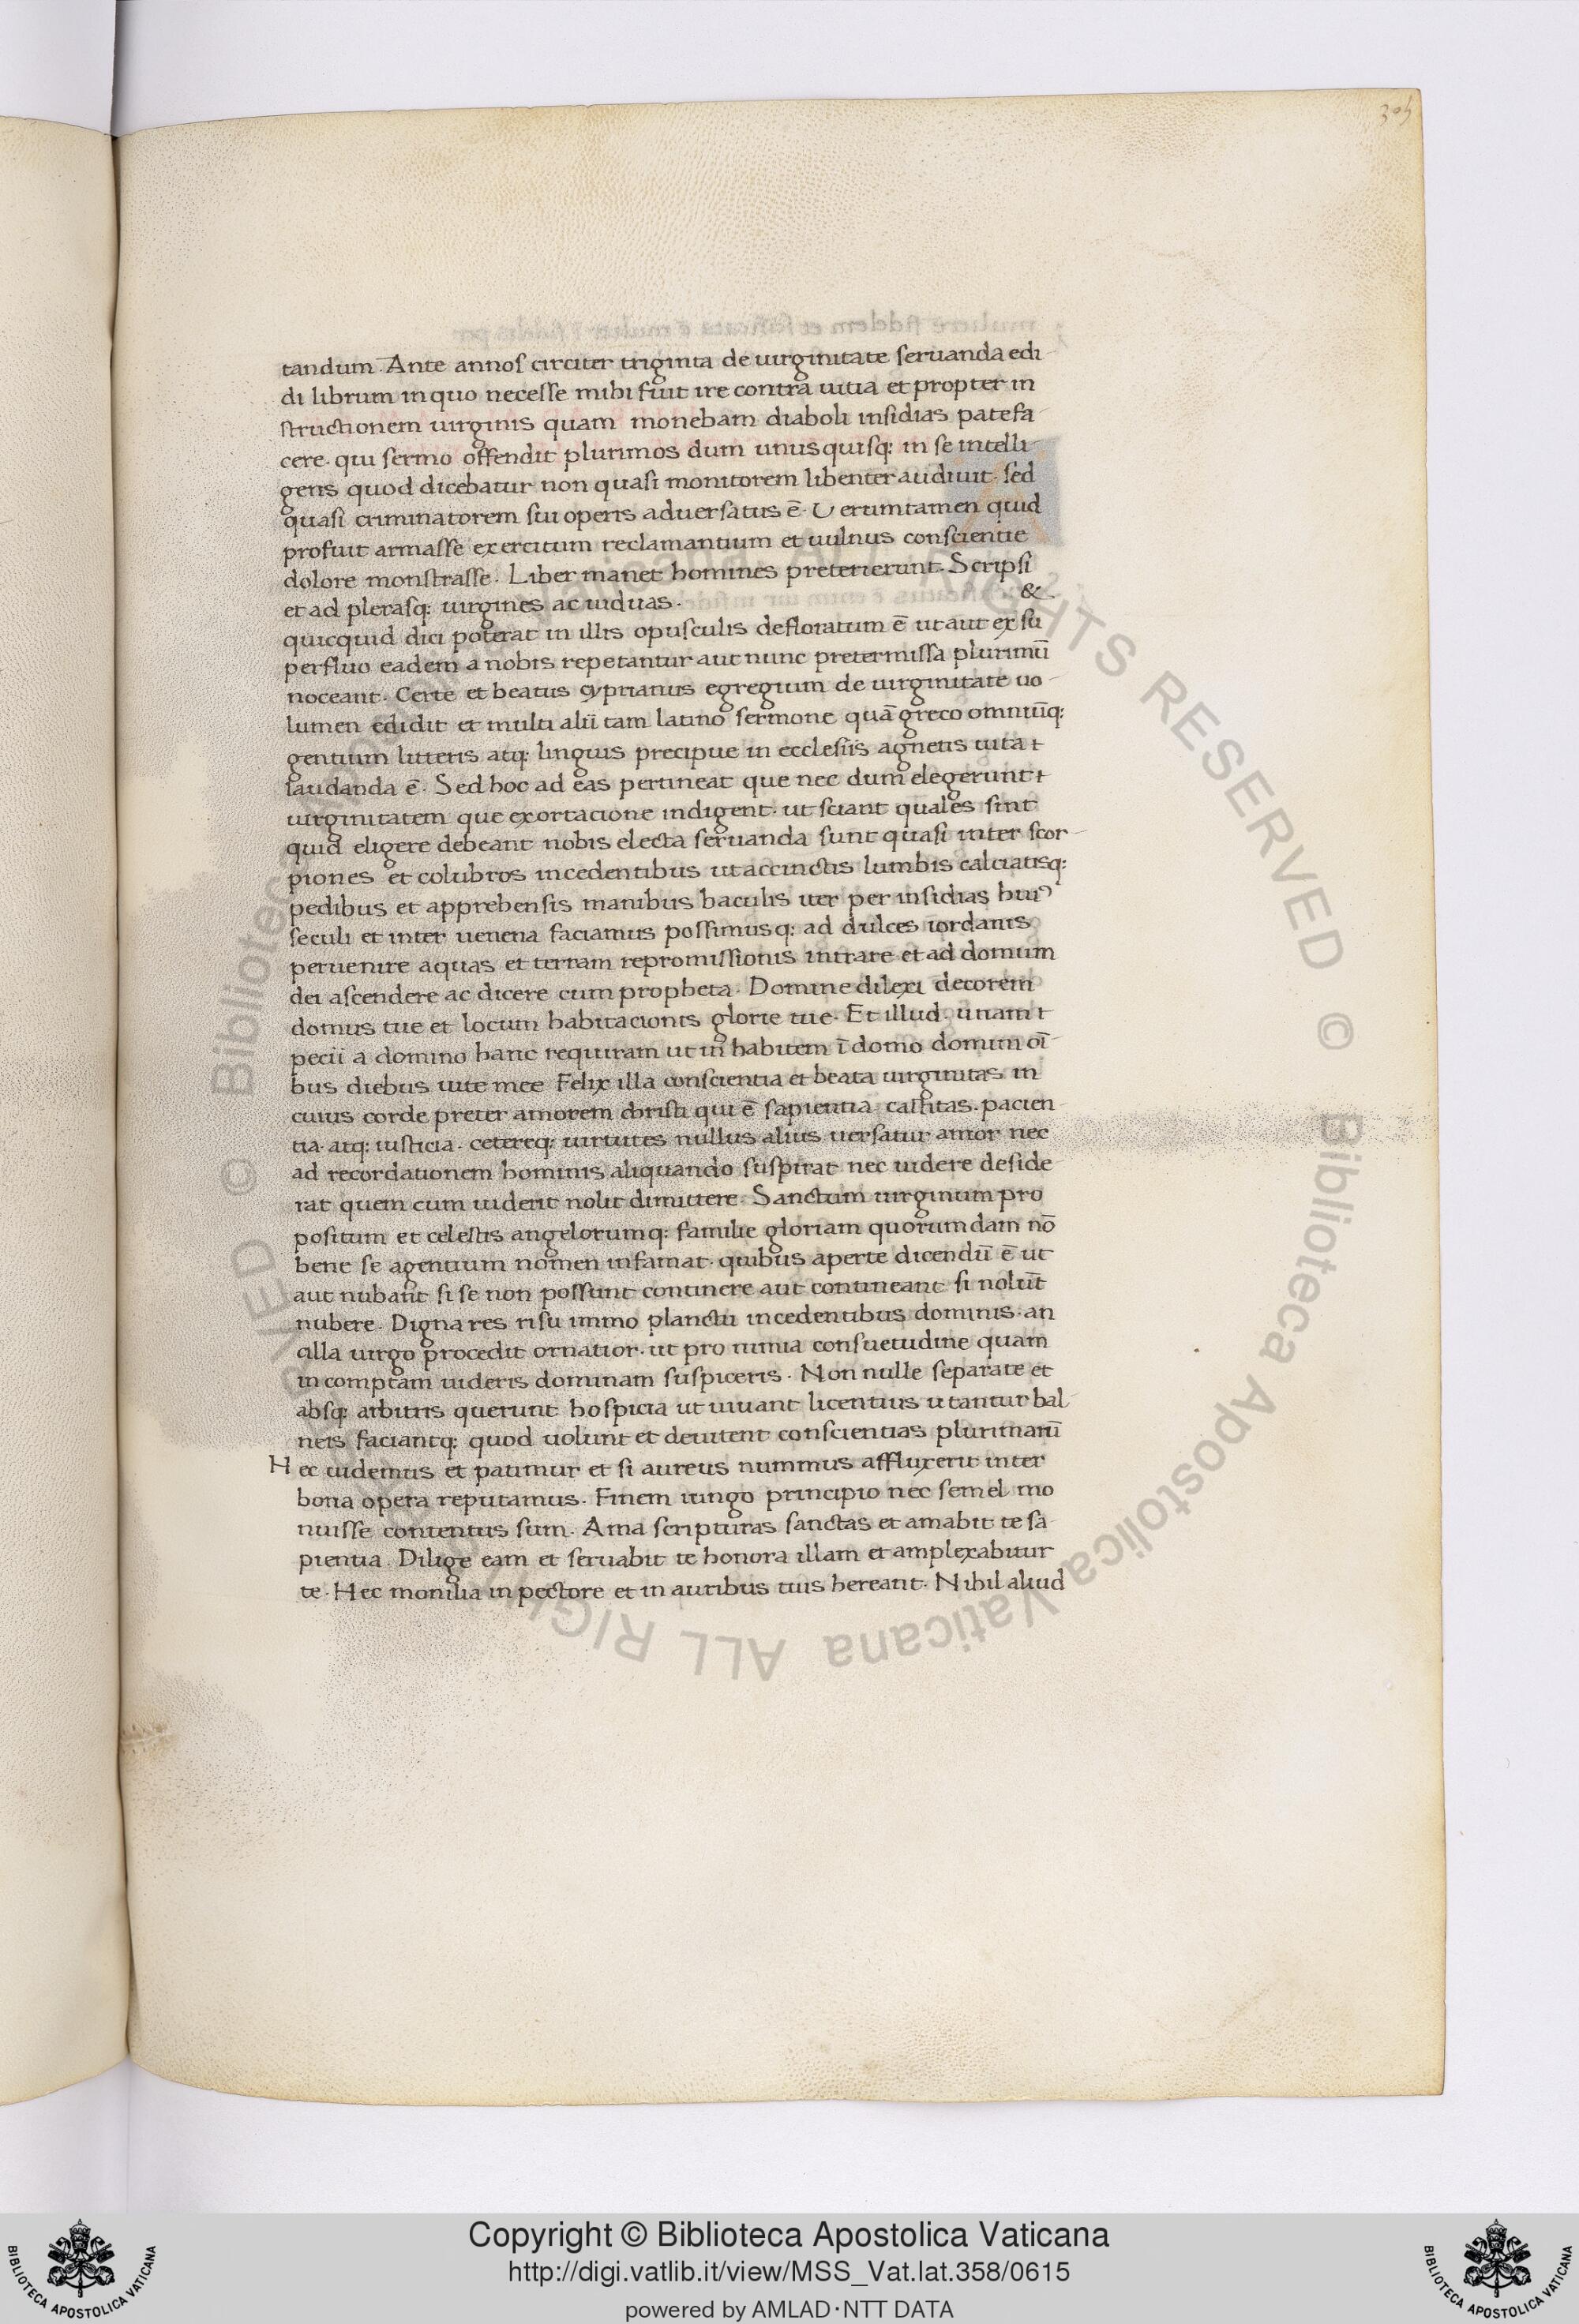 305
tandum. Ante annos circiter triginta de uirginitate seruanda edi-
di librum in quo necesse mihi fuit ire contra uitia et propter in
structionem uirginis quam monebam diaboli insidias patefa-
cere. qui sermo offendit plurimos dum unusquisq: in se intelli-
gens quod dicebatur non quasi monitorem libenter audiuit. sed
quasi criminatorem sui operis aduersatus ē. Uerumtamen quid
profuit armasse exercitum reclamantium et uulnus conscientie
dolore monstrasse. Liber manet homines preterierunt. Scripsi
et ad plerasq: uirgines ac uiduas. &
quicquid dici poterat in illis opusculis defloratum ē ut aut ex su
perfluo eadem a nobis repetantur aut nunc pretermissa plurimū
noceant. Certe et beatus cyprianus egregium de uirginitate uo-
lumen edidit et multi alii tam latino sermone quā greco omniūq:
gentium litteris atq: linguis precipue in ecclesiis agnetis uita
laudanda ē. Sed hoc ad eas pertineat que nec dum elegerunt
uirginitatem que exortacione indigent. ut sciant quales sint
quid eligere debeant nobis electa seruanda sunt quasi inter scor-
piones et colubros incedentibus ut accinctis lumbis calciatisq:
pedibus et apprehensis manibus baculis iter per insidias huiꝰ
seculi et inter uenena faciamus possimusq: ad dulces iordanis
peruenire aquas et terram repromissionis intrare et ad domum
dei ascendere ac dicere cum propheta. Domine dilexi decorem
domus tue et locum habitacionis glorie tue. Et illud. unam
pecii a domino hanc requiram ut in habitem ī domo domini oī-
bus diebus uite mee Felix illa conscientia et beata uirginitas in
cuius corde preter amorem christi qui ē sapientia castitas. pacien-
tia. atq: iusticia. cetereq: uirtutes nullus alius uersatur amor nec
ad recordationem hominis aliquando suspirat nec uidere deside
rat quem cum uiderit nolit dimittere. Sanctum uirginum pro
positum et celestis angelorumq: familie gloriam quorumdam nō
bene se agentium nomen infamat. quibus aperte dicendū ē ut
aut nubant si se non possunt continere aut contineant si nolūt
nubere. Digna res risu immo planctu incedentibus dominis. an
cilla uirgo procedit ornatior. ut pro nimia consuetudine quam
incomptam uideris dominam suspiceris. Non nulle separate et
absq: arbitris querunt hospicia ut uiuant licentius utantur bal-
neis faciantq: quod uolunt et deuitent conscientias plurimarū
Hec uidemus et patimur et si aureus nummus affluxerit inter
bona opera reputamus. Finem iungo principio nec semel mo
nuisse contentus sum. Ama scripturas sanctas et amabit te sa-
pientia. Dilige eam et seruabit te honora illam et amplexabitur
te. Hec monilia in pectore et in auribus tuis hereant. Nihil aliud
© Biblioteca Apostolica Vaticana ALL RIGHTS RESERVED © Biblioteca Apostolica Vaticana ALL RIGHTS RESERVED
Copyright © Biblioteca Apostolica Vaticana
http://digi.vatlib.it/view/MSS_Vat.lat.358/0615
powered by AMLAD·NTT DATA
BIBLIOTECA APOSTOLICA VATICANA
BIBLIOTECA APOSTOLICA VATICANA